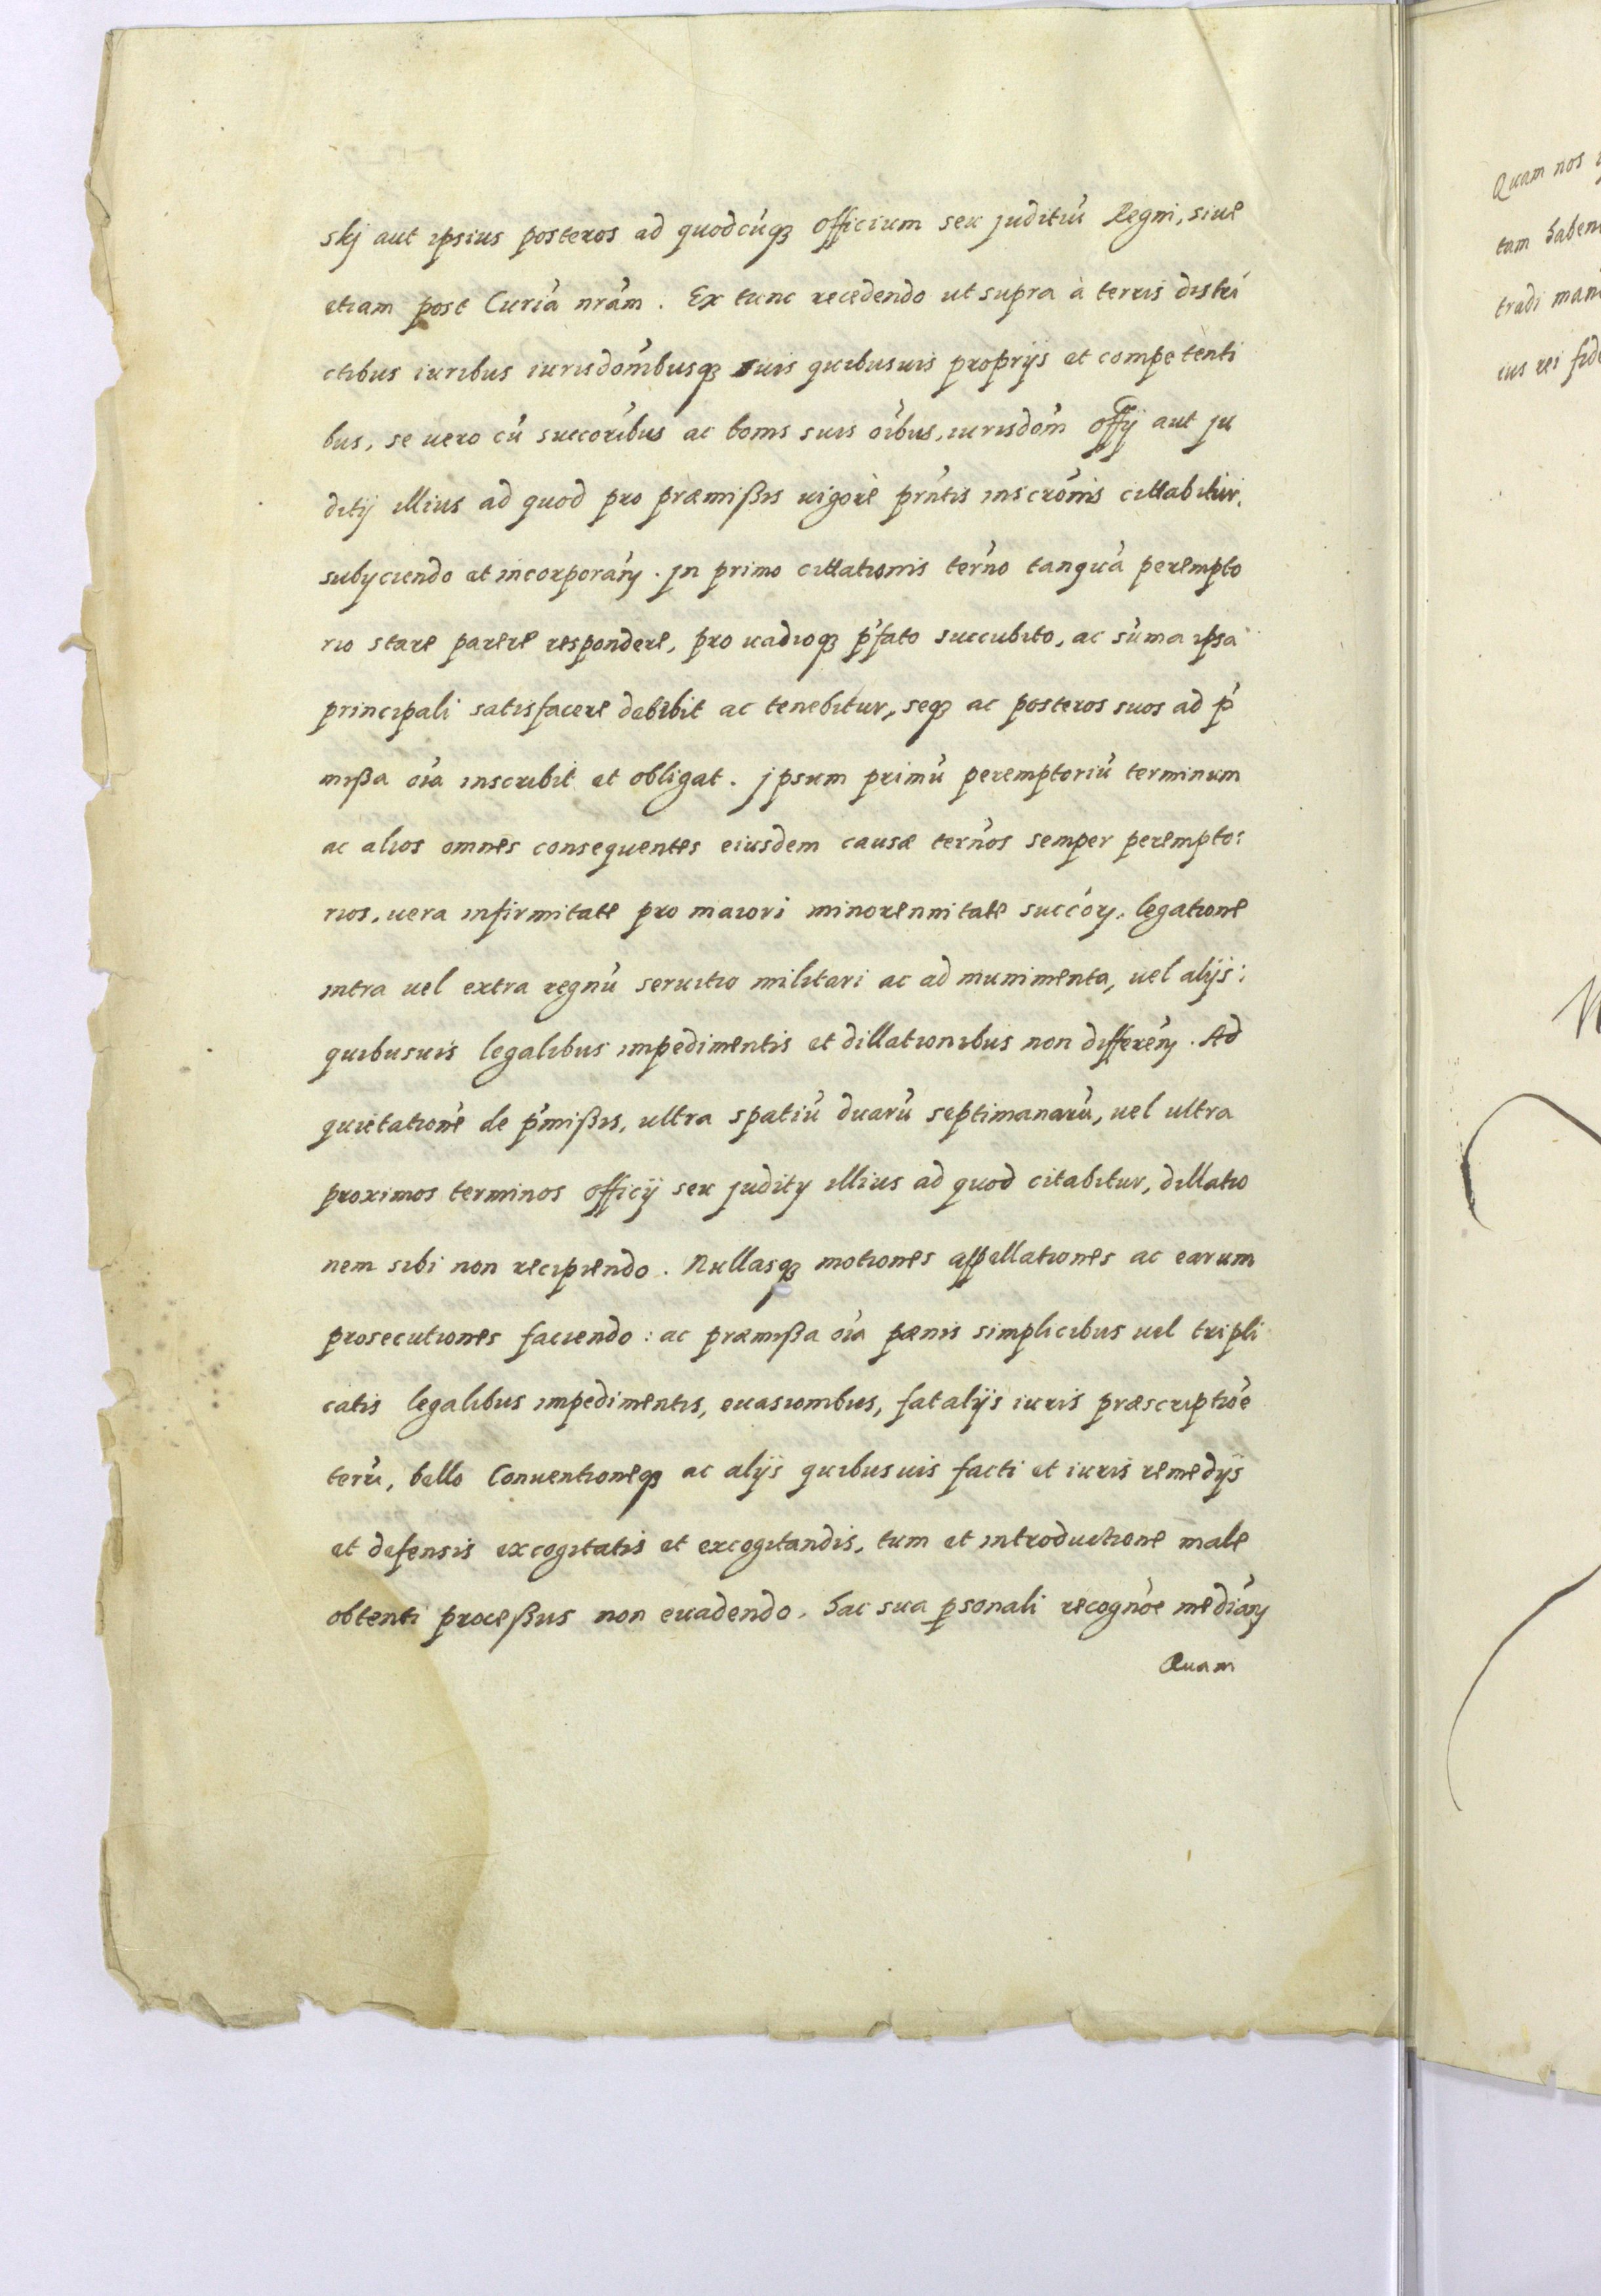 skj aut ipsius posteros ad quodcúqꝫ officium seu juditiú Regni, siue
etiam post Curiá nrám. Ex tunc recedendo ut supra à terris distri
ctibus iuribus iurisdom̃ibusqꝫ suis quibusuis proprijs et competenti
bus, se uero cú succoribus ac bonis suis oíbus, iurisdom̃ offij aut ju
ditij illius ad quod pro præmißis uigore prńtis inscrom̃is cittabitur,
subijciendo et incorporań. Jn primo cittationis terńo tanquá perempto
rio stare parere respondere, pro uadioqꝫ pʼfato succubito, ac súma ipsa
principali satisfacere debebit ac tenebitur, seqꝫ ac posteros suos ad pʼ
mißa oía inscribit et obligat. Jpsum primú peremptoriú terminum
ac alios omnes consequentes eiusdem causæ terńos semper perempto:
rios, uera infirmitate pro maiori minorennitate succóꝝ, legatione
intra uel extra regnú seruitio militari ac ad munimenta, uel alijs:
quibusuis legalibus impedimentis et dillationibus non differeń. Ad
quietationé de pʼmißis, ultra spatiú duarú septimanarú, uel ultra
proximos terminos officij seu judity illius ad quod citabitur, dillatio
nem sibi non recipiendo. Nullasqꝫ motiones appellationes ac earum
prosecutiones faciendo: ac præmißa oía pænis simplicibus uel tripli
catis legalibus impedimentis, euasionibus, fatalijs iuris præscriptioé
terrí, bello Conuentioneqꝫ ac alijs quibusuis facti et iuris remedijs
et defensis excogitatis et excogitandis, tum et introductione male
obtenti proceßus non euadendo, hac sua ꝑsonali recognóe mediań
Quam
Quam nos
tam haben
tradi man
ius rei fid